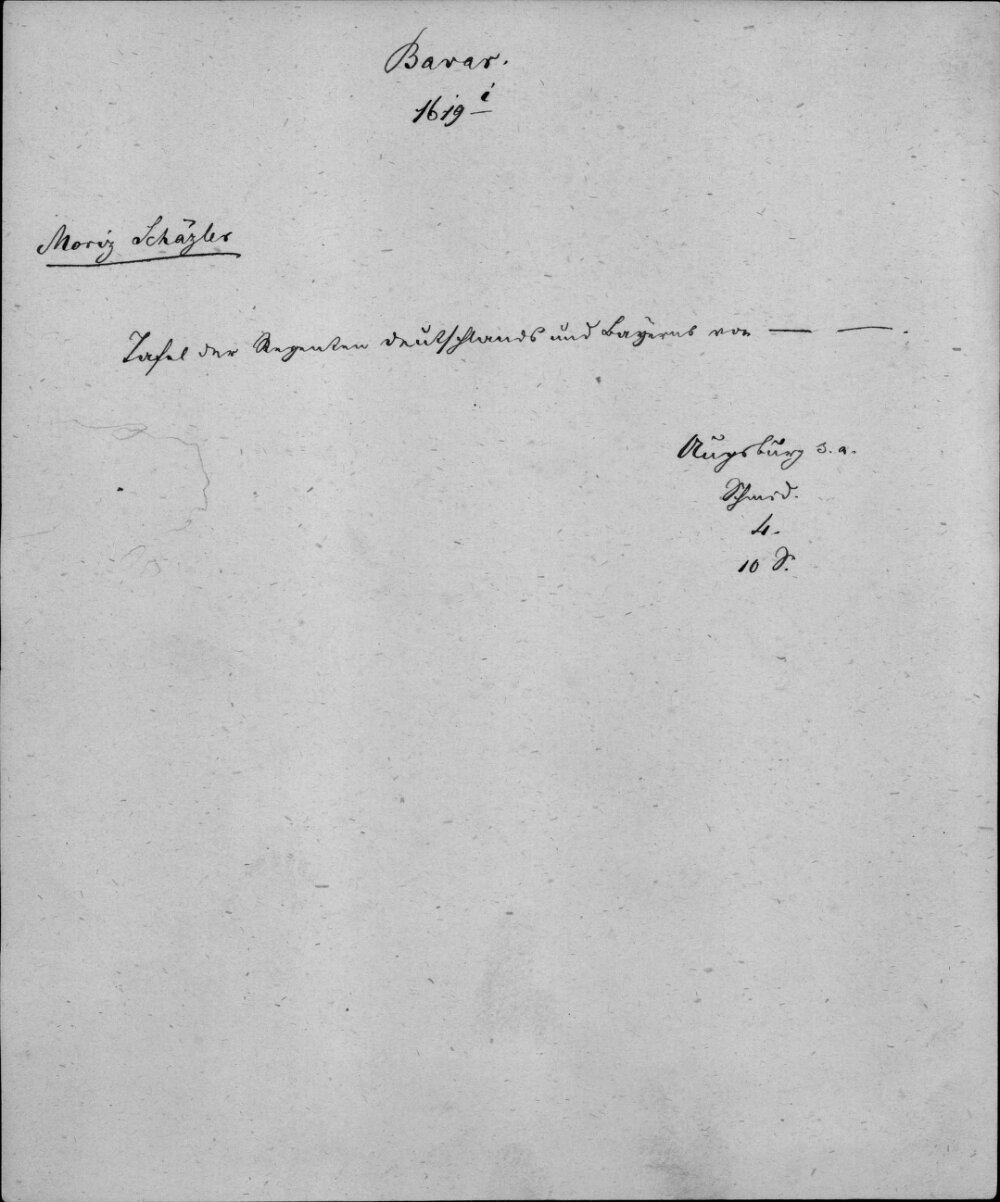 Bavar.
1619 i
Moriz Schäzler
Tafel der Regenten Deutschlands und Bayerns von — —.
Augsburg s. a.
Schmid.
4.
10 S.